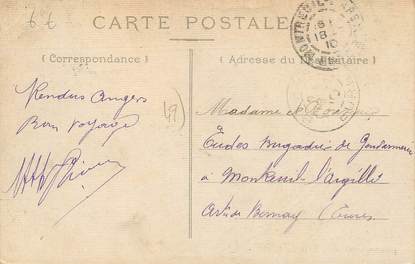 6 €
CARTE POSTALE
MONTREUIL-L'ARGILLÉ
18
10
( Correspondance )
( Adresse du Destinataire )
Rendus Angers
Bon Voyage
49
Madame
Eudes Brigadier de Gendarmerie
à Montreuil l'argillé
Art de Bernay (Eure)